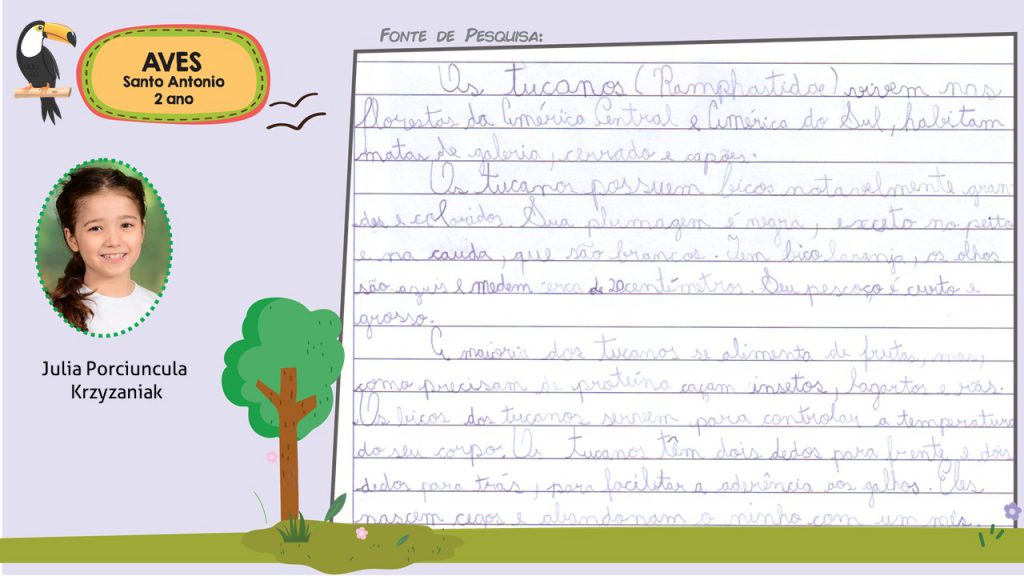 AVES
Santo Antonio
2 ano
Julia Porciuncula
Krzyzaniak
FONTE DE PESQUISA:
Os tucanos (Ramphastidae) vivem nas
florestas da América Central e América do Sul, habitam
matas de galeria, cerrado e capões.
Os tucanos possuem bicos notavelmente gran
des e coloridos Sua plumagem é negra, exceto no peito
e na cauda, que são brancos. Tem bico laranja, os olhos
são azuis e medem cerca de 20 centímetros. Seu pescoço é curto e
grosso.
A maioria dos tucanos se alimenta de frutas, mas,
como precisam de proteína caçam insetos, lagartos e rãs.
Os bicos dos tucanos servem para controlar a temperatura
do seu corpo. Os tucanos têm dois dedos para frente e dois
dedos para trás, para facilitar a aderência aos galhos. Eles
nascem cegos e abandonam o ninho com um mês.